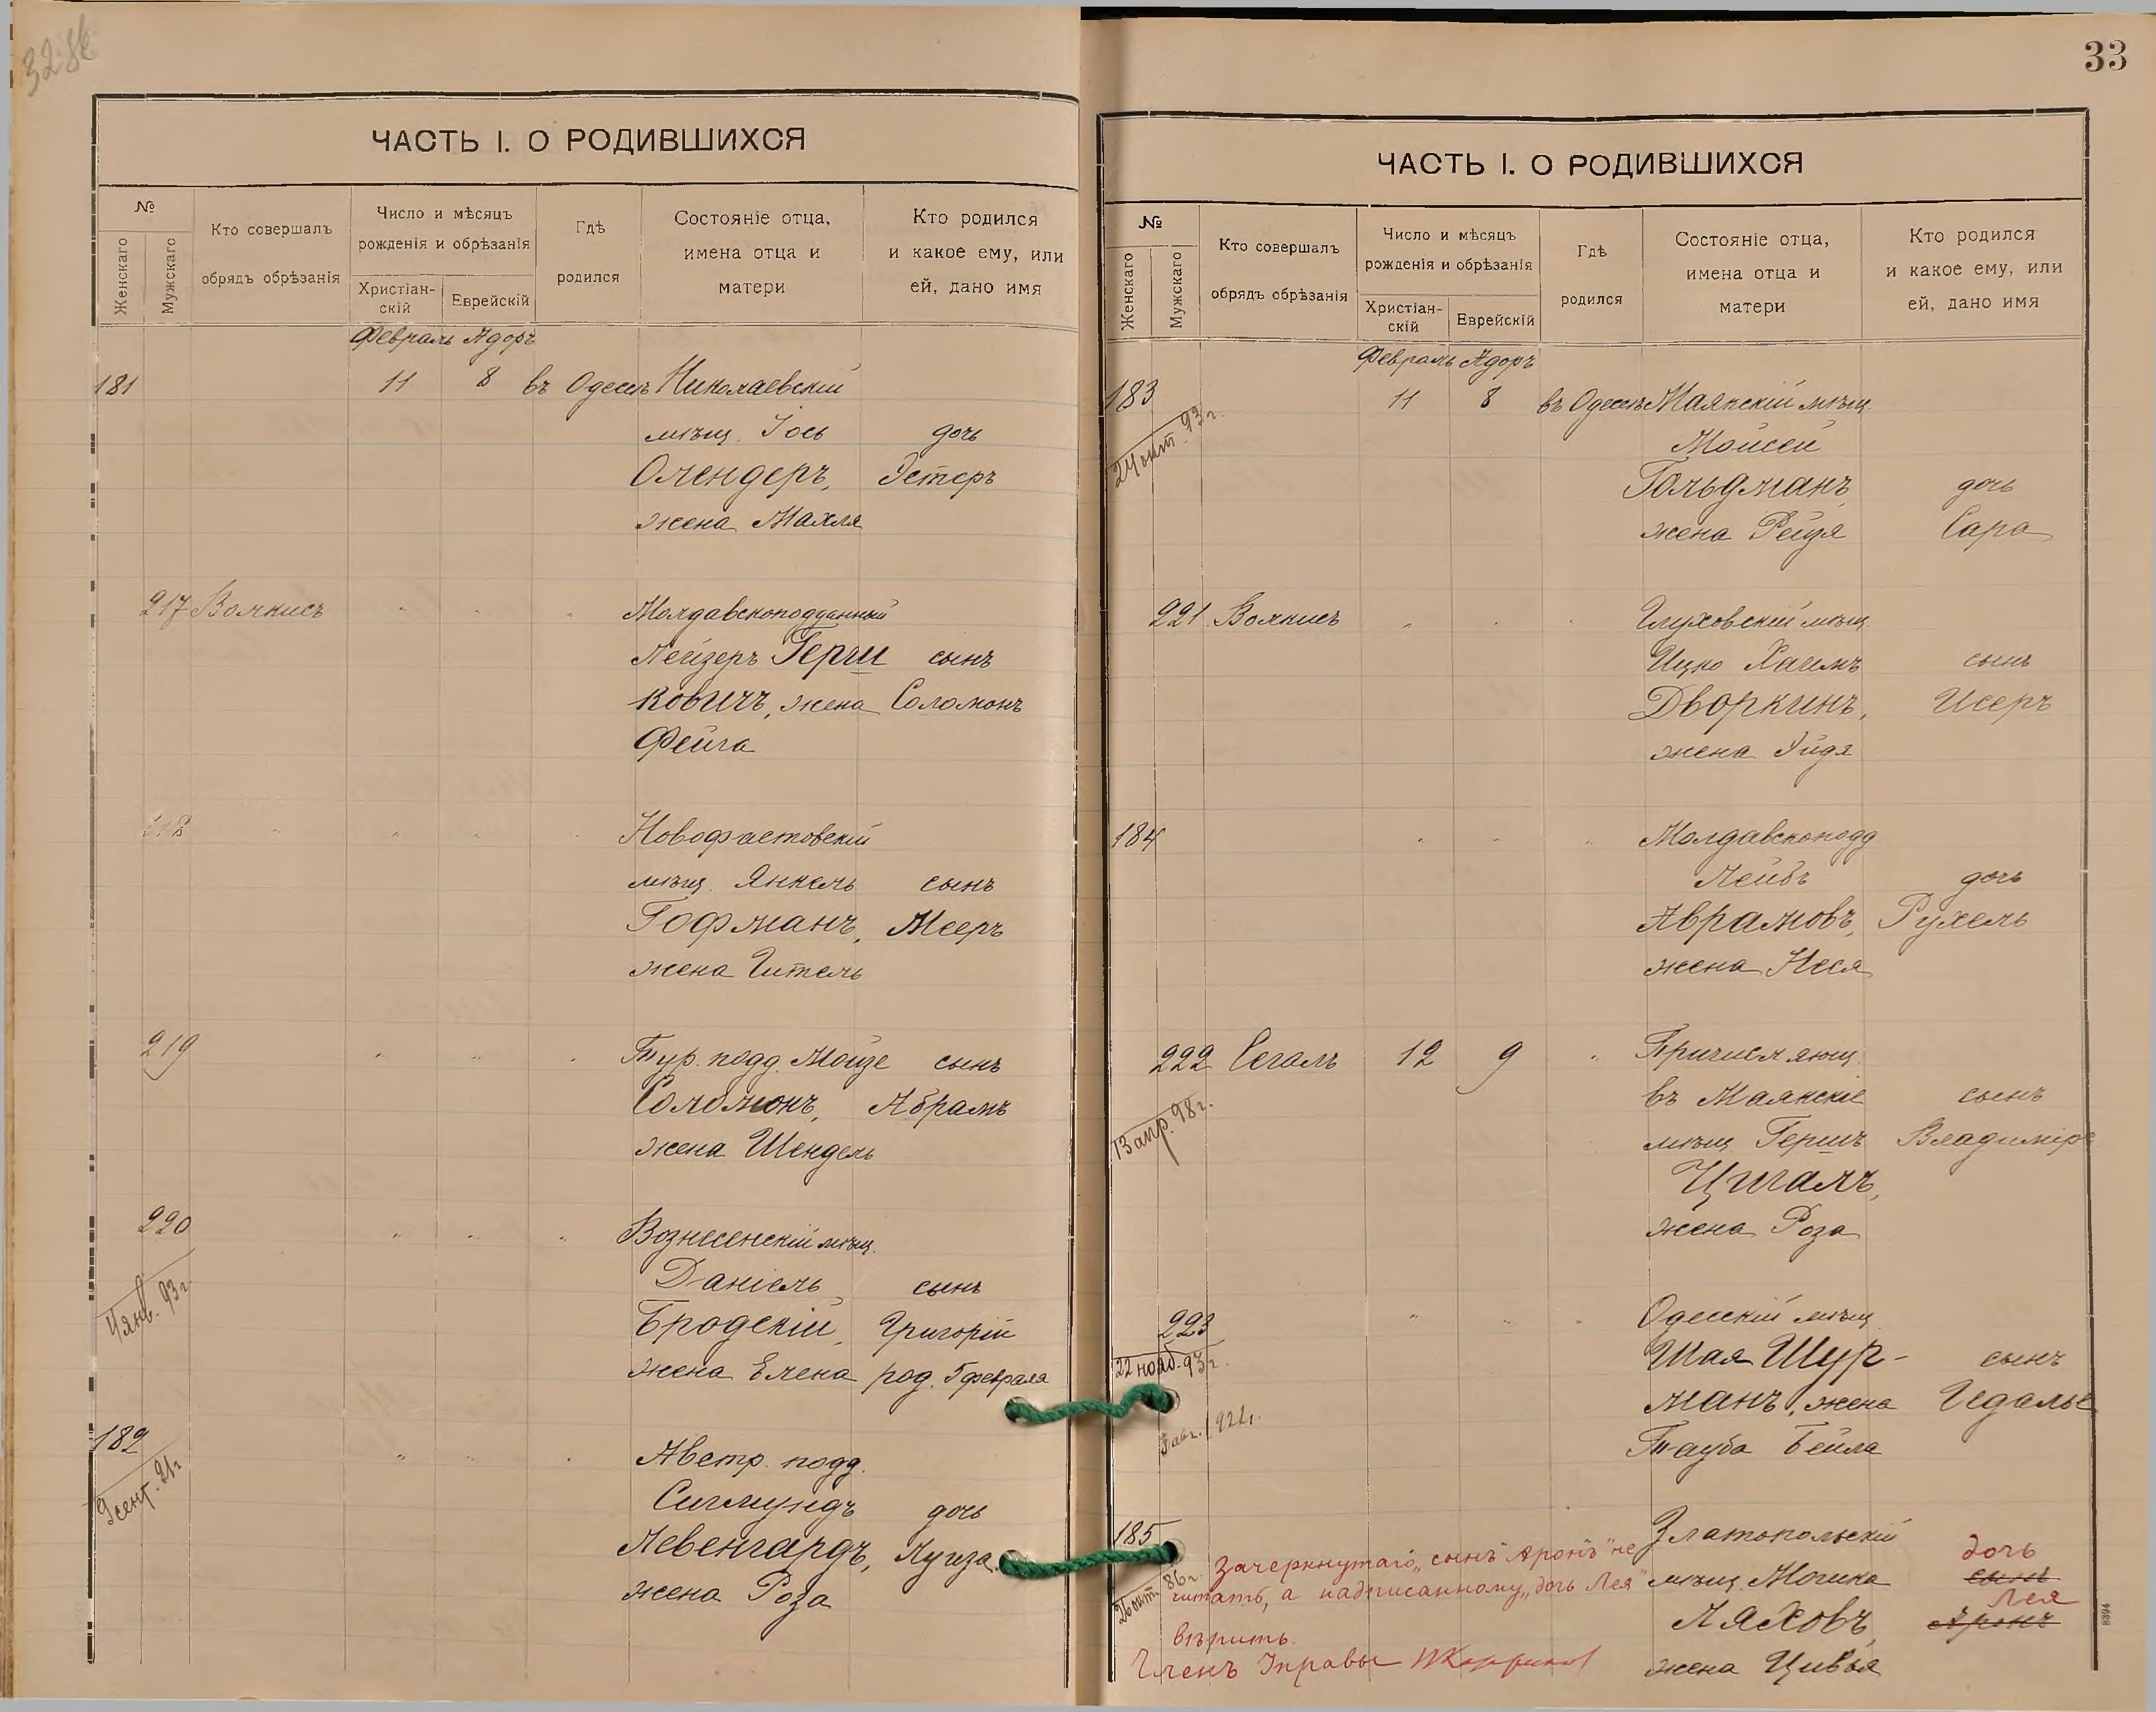 ЧАСТЬ I. О РОДИВШИХСЯ
№
Женскаго
Мужскаго
Кто совершалъ
обрядъ обрѣзанія
Число и мѣсяцъ
рожденія и обрѣзанія
Христіан-
скій
Еврейскій
Гдѣ
родился
Состояніе отца,
имена отца и
матери
Кто родился
и какое ему, или
ей, дано имя
Февраль Адоръ
181 11 8 въ Одессѣ Николаевскій
мѣщ. Іось дочь
Олендеръ, Эстеръ
жена Махля
217 Волкисъ " " " Молдавскоподданный
Лейзеръ Герш сынъ
ковичъ, жена Соломонъ
Фейга
218 " " " " Новофастовскій
мѣщ. Янкель сынъ
Гофманъ, Мееръ
жена Гитель
219 " " " Тур. подд. Мойзе сынъ
Соломонъ, Абрамъ
жена Шендель
220 " " " Вознесенскій мѣщ.
4 янв. 93 г.
Даніель, сынъ
Бродскій, Григорій
жена Елена род. 5 февраля
182 " " " Австр. подд.
9 сент. 91 г.
Сигмундъ дочь
Левенгардъ, Луиза
жена Роза
33
ЧАСТЬ I. О РОДИВШИХСЯ
№
Женскаго
Мужскаго
Кто совершалъ
обрядъ обрѣзанія
Число и мѣсяцъ
рожденія и обрѣзанія
Христіан-
скій
Еврейскій
Гдѣ
родился
Состояніе отца,
имена отца и
матери
Кто родился
и какое ему, или
ей, дано имя
Февраль Адоръ
183 11 8 въ Одессѣ Маякскій мѣщ.
24 окт. 93 г.
Мойсей
Гольдманъ дочь
жена Рейзя Сара
221 Волкисъ " " " Глуховскій мѣщ
Ицко Хаимъ сынъ
Дворкинъ, Исеръ
жена Эйдя
184 " " " Молдавскоподд
Лейбъ дочь
Аврамовъ, Рухель
жена Неся
222 Сегалъ 12 9 " Причисляющ.
13 апр. 98 г.
въ Маякскіе сынъ
мѣщ Гершъ Владиміръ
Цигалъ,
жена Роза
223 " " " Одесскій мѣщ
22 нояб. 93 г.
Шая Шур- сынъ
манъ, жена Гедалье
авг. 92 г.
Тауба Бейла
185 Златопольскій
дочь
26 окт. 86 г.
Зачеркнутаго „сынъ Аронъ" не
мѣщ. Мошка сынъ
читать, а надписанному „дочь Лея"
Лея
Ляховъ Аронъ
вѣрить.
Членъ Управы
жена Цивья
8394